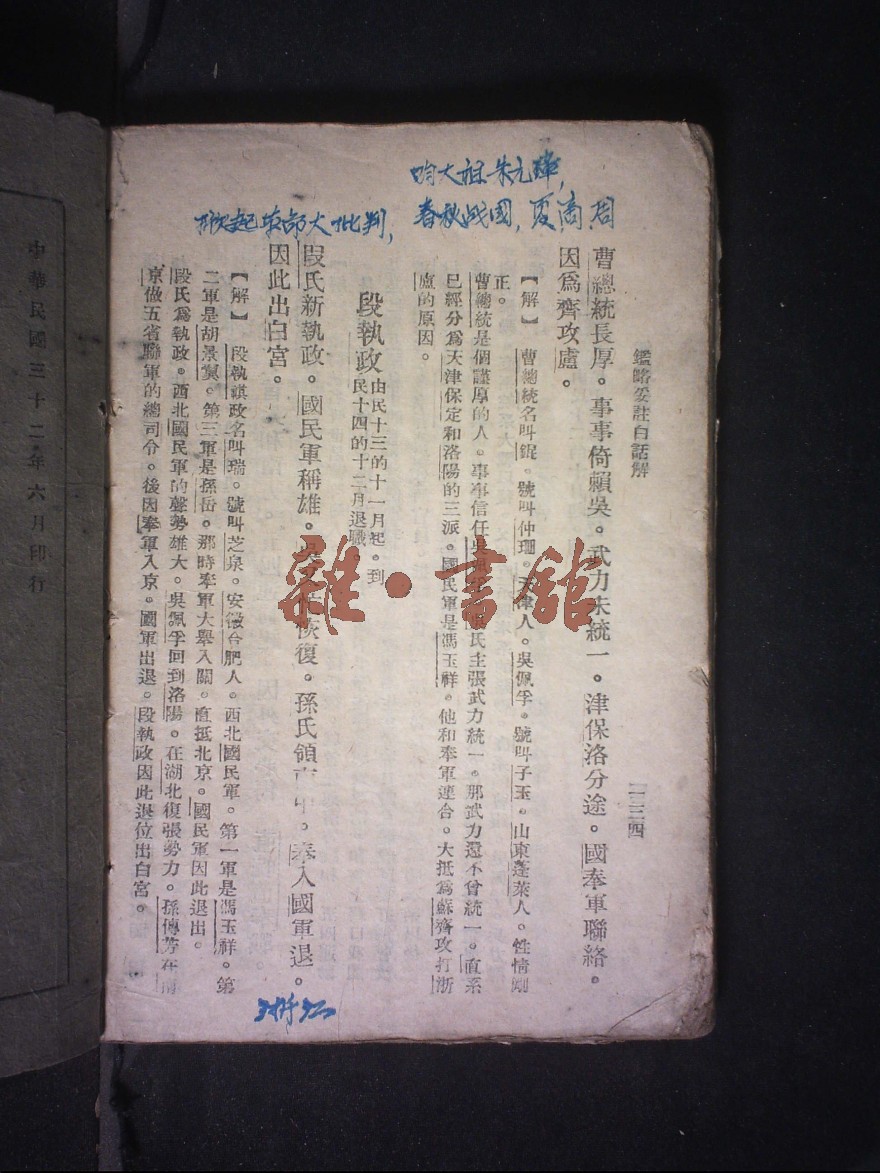 鑑略妥註白話解
一三四
曹總統長厚。事事倚賴吳。武力未統一。津保洛分途。國奉軍聯絡。
因爲齊攻盧。
【解】曹總統名叫錕。號叫仲珊。天津人。吳佩孚。號叫子玉。山東蓬萊人。性情剛
正。
曹總統是個謹厚的人。事事信任吳佩孚。吳氏主張武力統一。那武力還不曾統一。直系
已經分爲天津保定和洛陽的三派。國民軍是馮玉祥。他和奉軍連合。大抵爲蘇齊攻打浙
盧的原因。
段執政
由民十三的十一月起。到
民十四的十二月退職。
段氏新執政。國民軍稱雄。恢復。孫氏領。奉入國軍退。
因此出白宮。
【解】段執政名叫瑞。號叫芝泉。安徽合肥人。西北國民軍。第一軍是馮玉祥。第
二軍是胡景翼。第三軍是孫岳。那時奉軍大舉入關。直抵北京。國民軍因此退出。
段氏爲執政。西北國民軍的聲勢雄大。吳佩孚回到洛陽。在湖北復張勢力。孫傳芳在南
京做五省聯軍的總司令。後因奉軍入京。國軍出退。段執政因此退位出白宮。
大祖朱元璋,
春秋战國,夏商周
起來部大批判,
中華民國三十二年六月印行
雜·書館